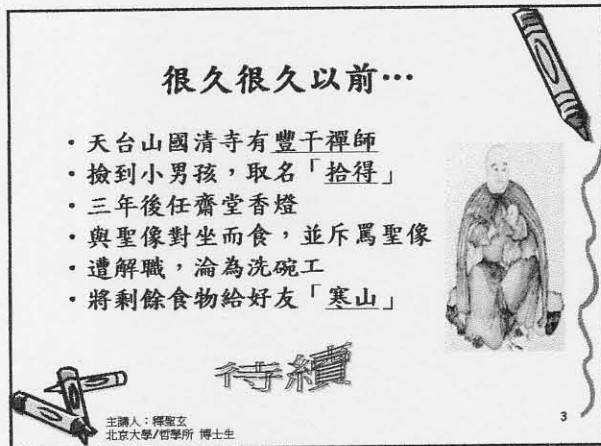 很久很久以前…
・天台山國清寺有豐干禪師
・撿到小男孩，取名「拾得」
・三年後任齋堂香燈
・與聖像對坐而食，並斥罵聖像
・遭解職，淪為洗碗工
・將剩餘食物給好友「寒山」
待續
主講人：釋聖玄
北京大學/哲學所 博士生
3